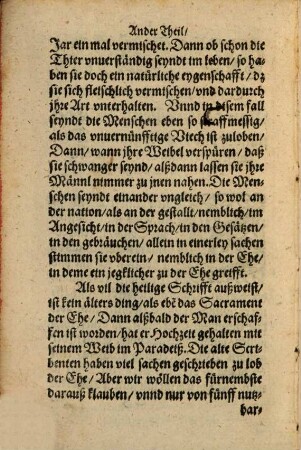 Ander Theil/
Jar ein mal vermischet. Dann ob schon die
Thier vnuerständig seyndt im leben/ so ha-
ben sie doch ein natürliche eygenschafft/ dz
sie sich fleischlich vermischen/ vnd dardurch
jhre Art vnterhalten. Vnnd in disem fall
seyndt die Menschen eben so straffmessig/
als das vnuernünfftige Viech ist zuloben/
Dann/ wann jhre Weibel verspüren/ daß
sie schwanger seynd/ alßdann lassen sie jhre
Männl nimmer zu jnen nahen. Die Men-
schen seyndt einander vngleich/ so wol an
der nation/ als an der gestallt/ nemblich/ im
Angesicht/ in der Sprach/ in den Gesätzen/
in den gebräuchen/ allein in einerley sachen
stimmen sie vberein/ nemblich in der Ehe/
in deme ein jegklicher zu der Ehe greifft.
Als vil die heilige Schrifft außweist/
ist kein älters ding/ als ebẽ das Sacrament
der Ehe/ Dann alßbald der Man erschaf-
fen ist worden/ hat er Hochzeit gehalten mit
seinem Weib im Paradeiß. Die alte Scri-
benten haben viel sachen geschrieben zu lob
der Ehe/ Aber wir wöllen das fürnembste
darauß klauben/ vnnd nur von fünff nutz-
bar-